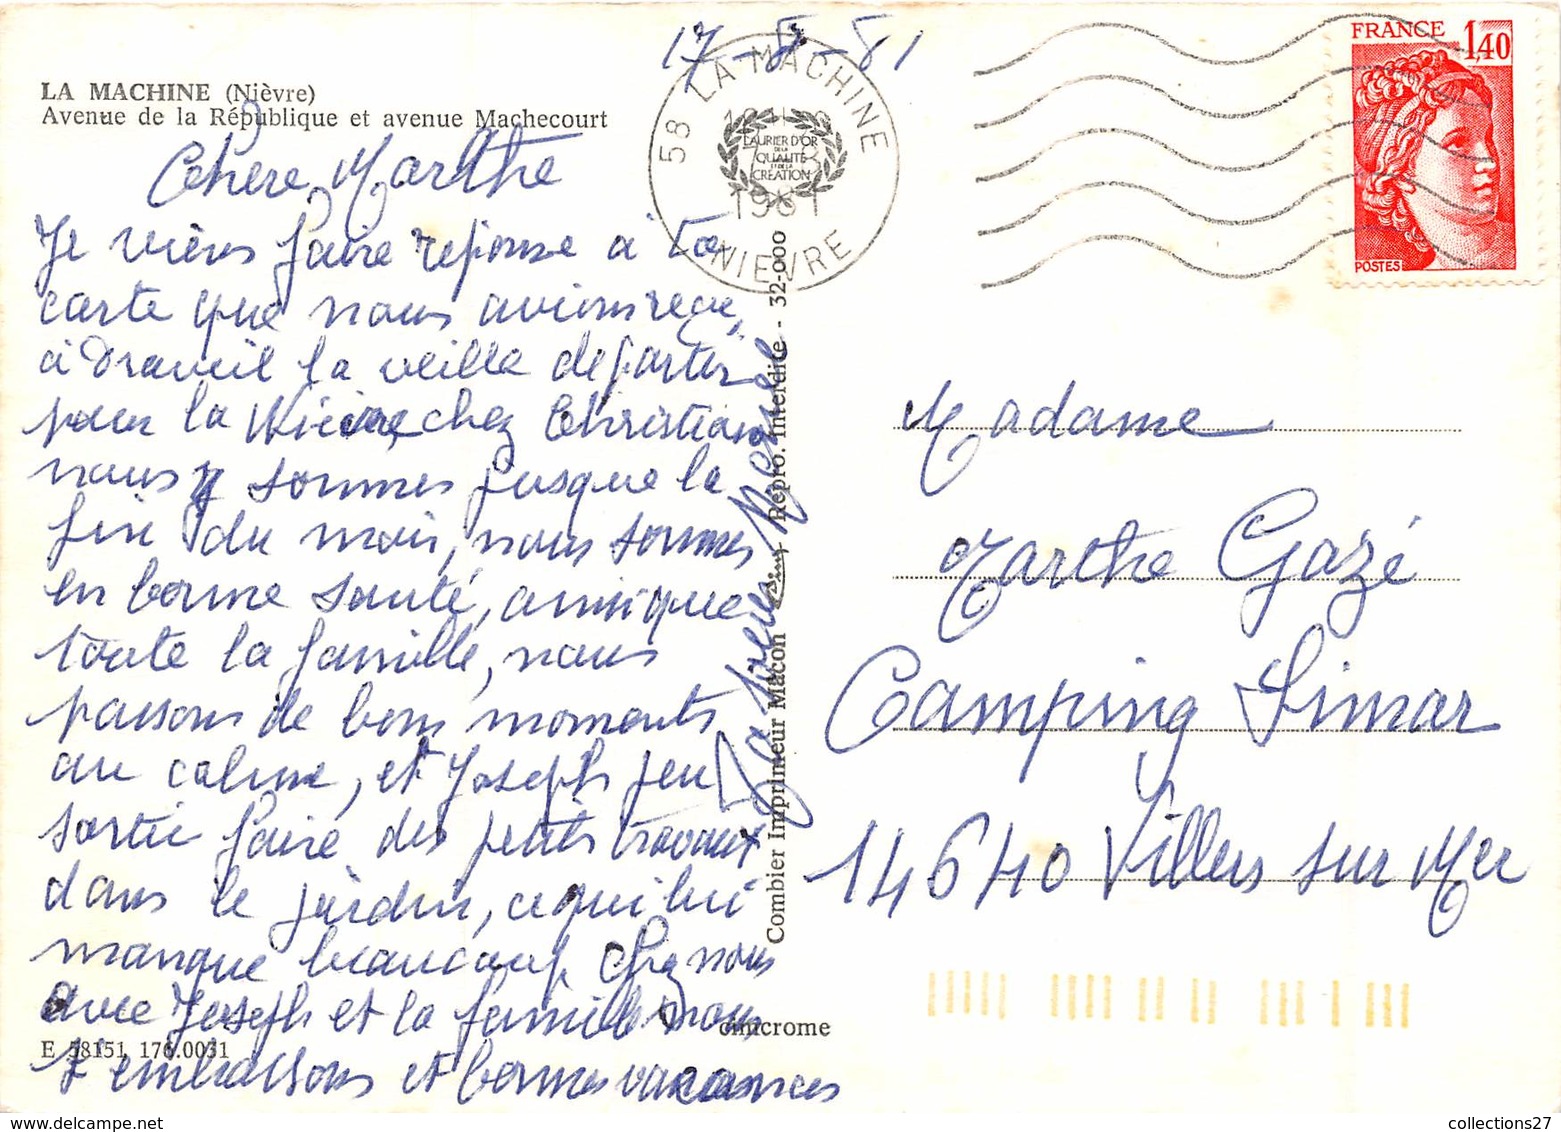 17-8-81
LA MACHINE (Nièvre)
Avenue de la République et avenue Machecourt
58 LA MACHINE
LAURIER D'OR
DE LA
QUALITÉ
ET DE LA
CRÉATION
1981
NIEVRE
FRANCE 1,40
POSTES
Chère Marthe
Je viens faire réponse à ta
carte que nous avions reçue,
à Draveil la veille de partir
pour la Nièvre, chez Christian
nous y sommes jusque la
fin du mois, nous sommes
en bonne santé, ainsi que
toute la famille, nous
passons de bons moments
au calme, et Joseph peu
sortir faire des petits travaux
dans le jardin, ce qui lui
manque beaucoup chez nous
avec Joseph et la famille nous
t'embrassons et bonnes vacances
E 58151 176.0031
cimcrome
Combier Imprimeur Macon Repro. Interdite - 32-000
Madame
Marthe Gazé
Camping Simar
14640 Villers sur Mer
collections27